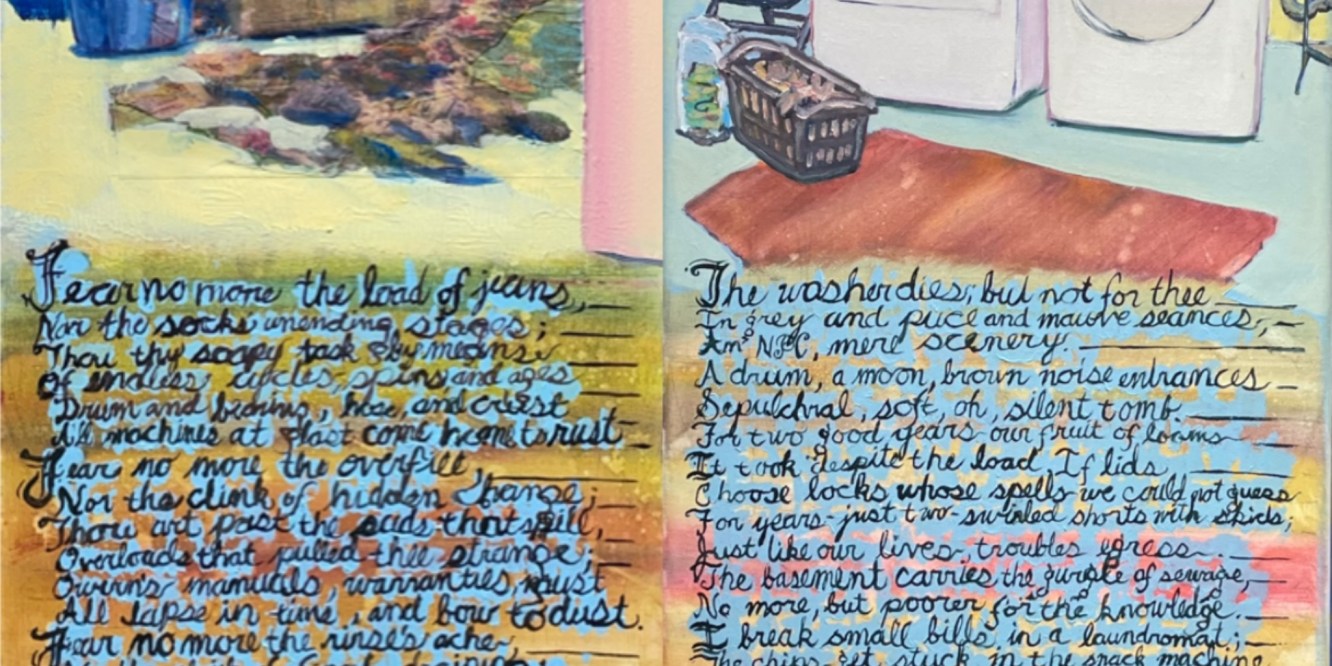 Fear no more the load of jeans,
Nor the socks' unending stages;
Thou thy soapy task by means
Of endless cycles, spins, and ages
Drum and bearing, hose, and crust
All machines at last come home to rust
Fear no more the overfill,
Nor the clink of hidden change;
Thou art past the suds that spill,
Overloads that pulled thee strange;
Owner's manuals, warranties, must
All lapse in time, and bow to dust.
Fear no more the rinse's ache,
The washer dies; but not for thee
In grey and puce and mauve seances,
Am NPC, mere scenery.
A drum, a moon, brown noise entrances
Sepulchral, soft, oh, silent tomb.
For two good years our fruit of looms
It took despite the load, If lids
Choose locks whose spells we could not guess
For years just two-swirled shorts with skids;
Just like our lives, troubles egress.
The basement carries the gurgle of sewage,
No more, but poorer for the knowledge.
I break small bills in a laundromat;
The chips get stuck in the snack machine